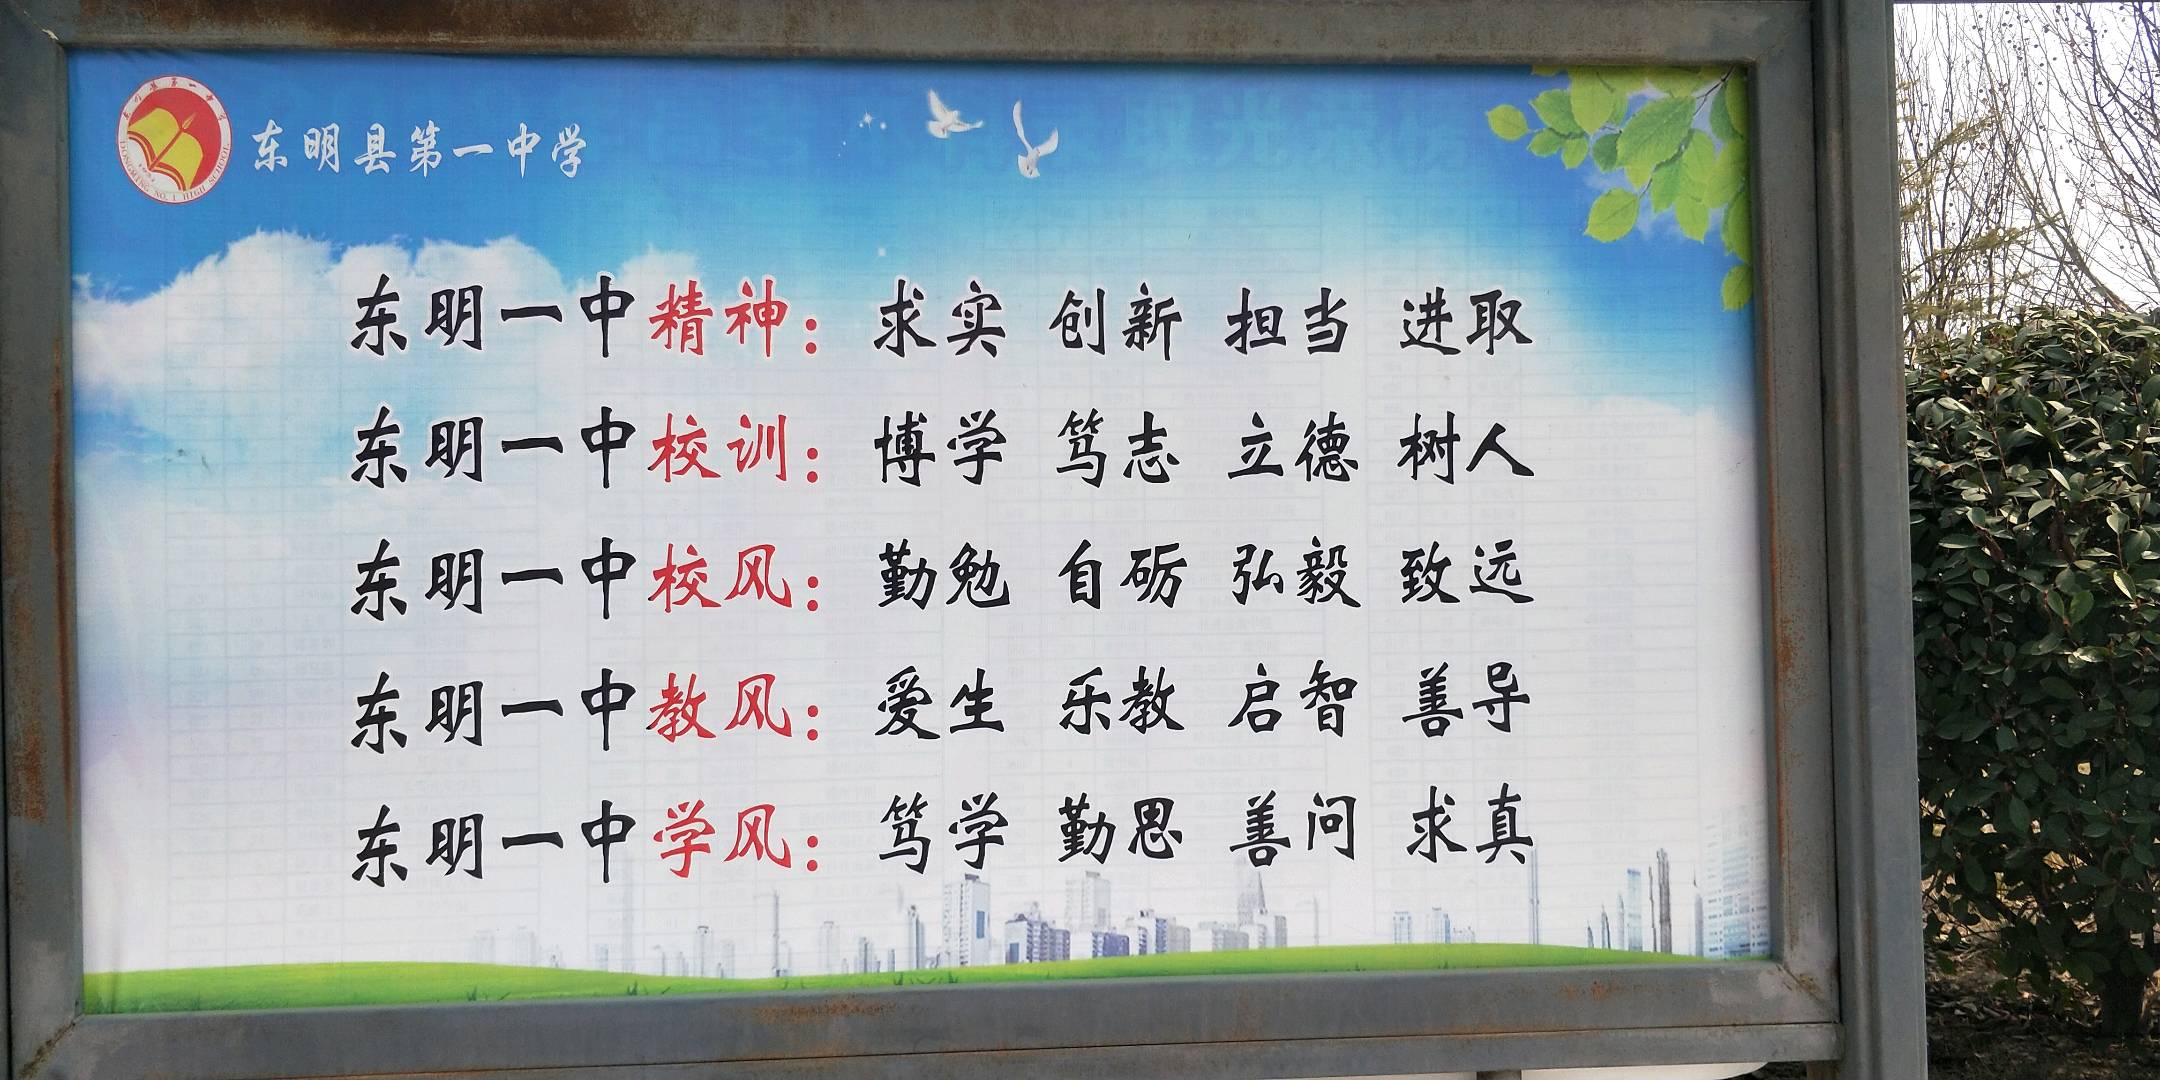 东明县第一中学
DONGMING NO.1 HIGH SCHOOL
东明一中精神：求实 创新 担当 进取
东明一中校训：博学 笃志 立德 树人
东明一中校风：勤勉 自砺 弘毅 致远
东明一中教风：爱生 乐教 启智 善导
东明一中学风：笃学 勤思 善问 求真